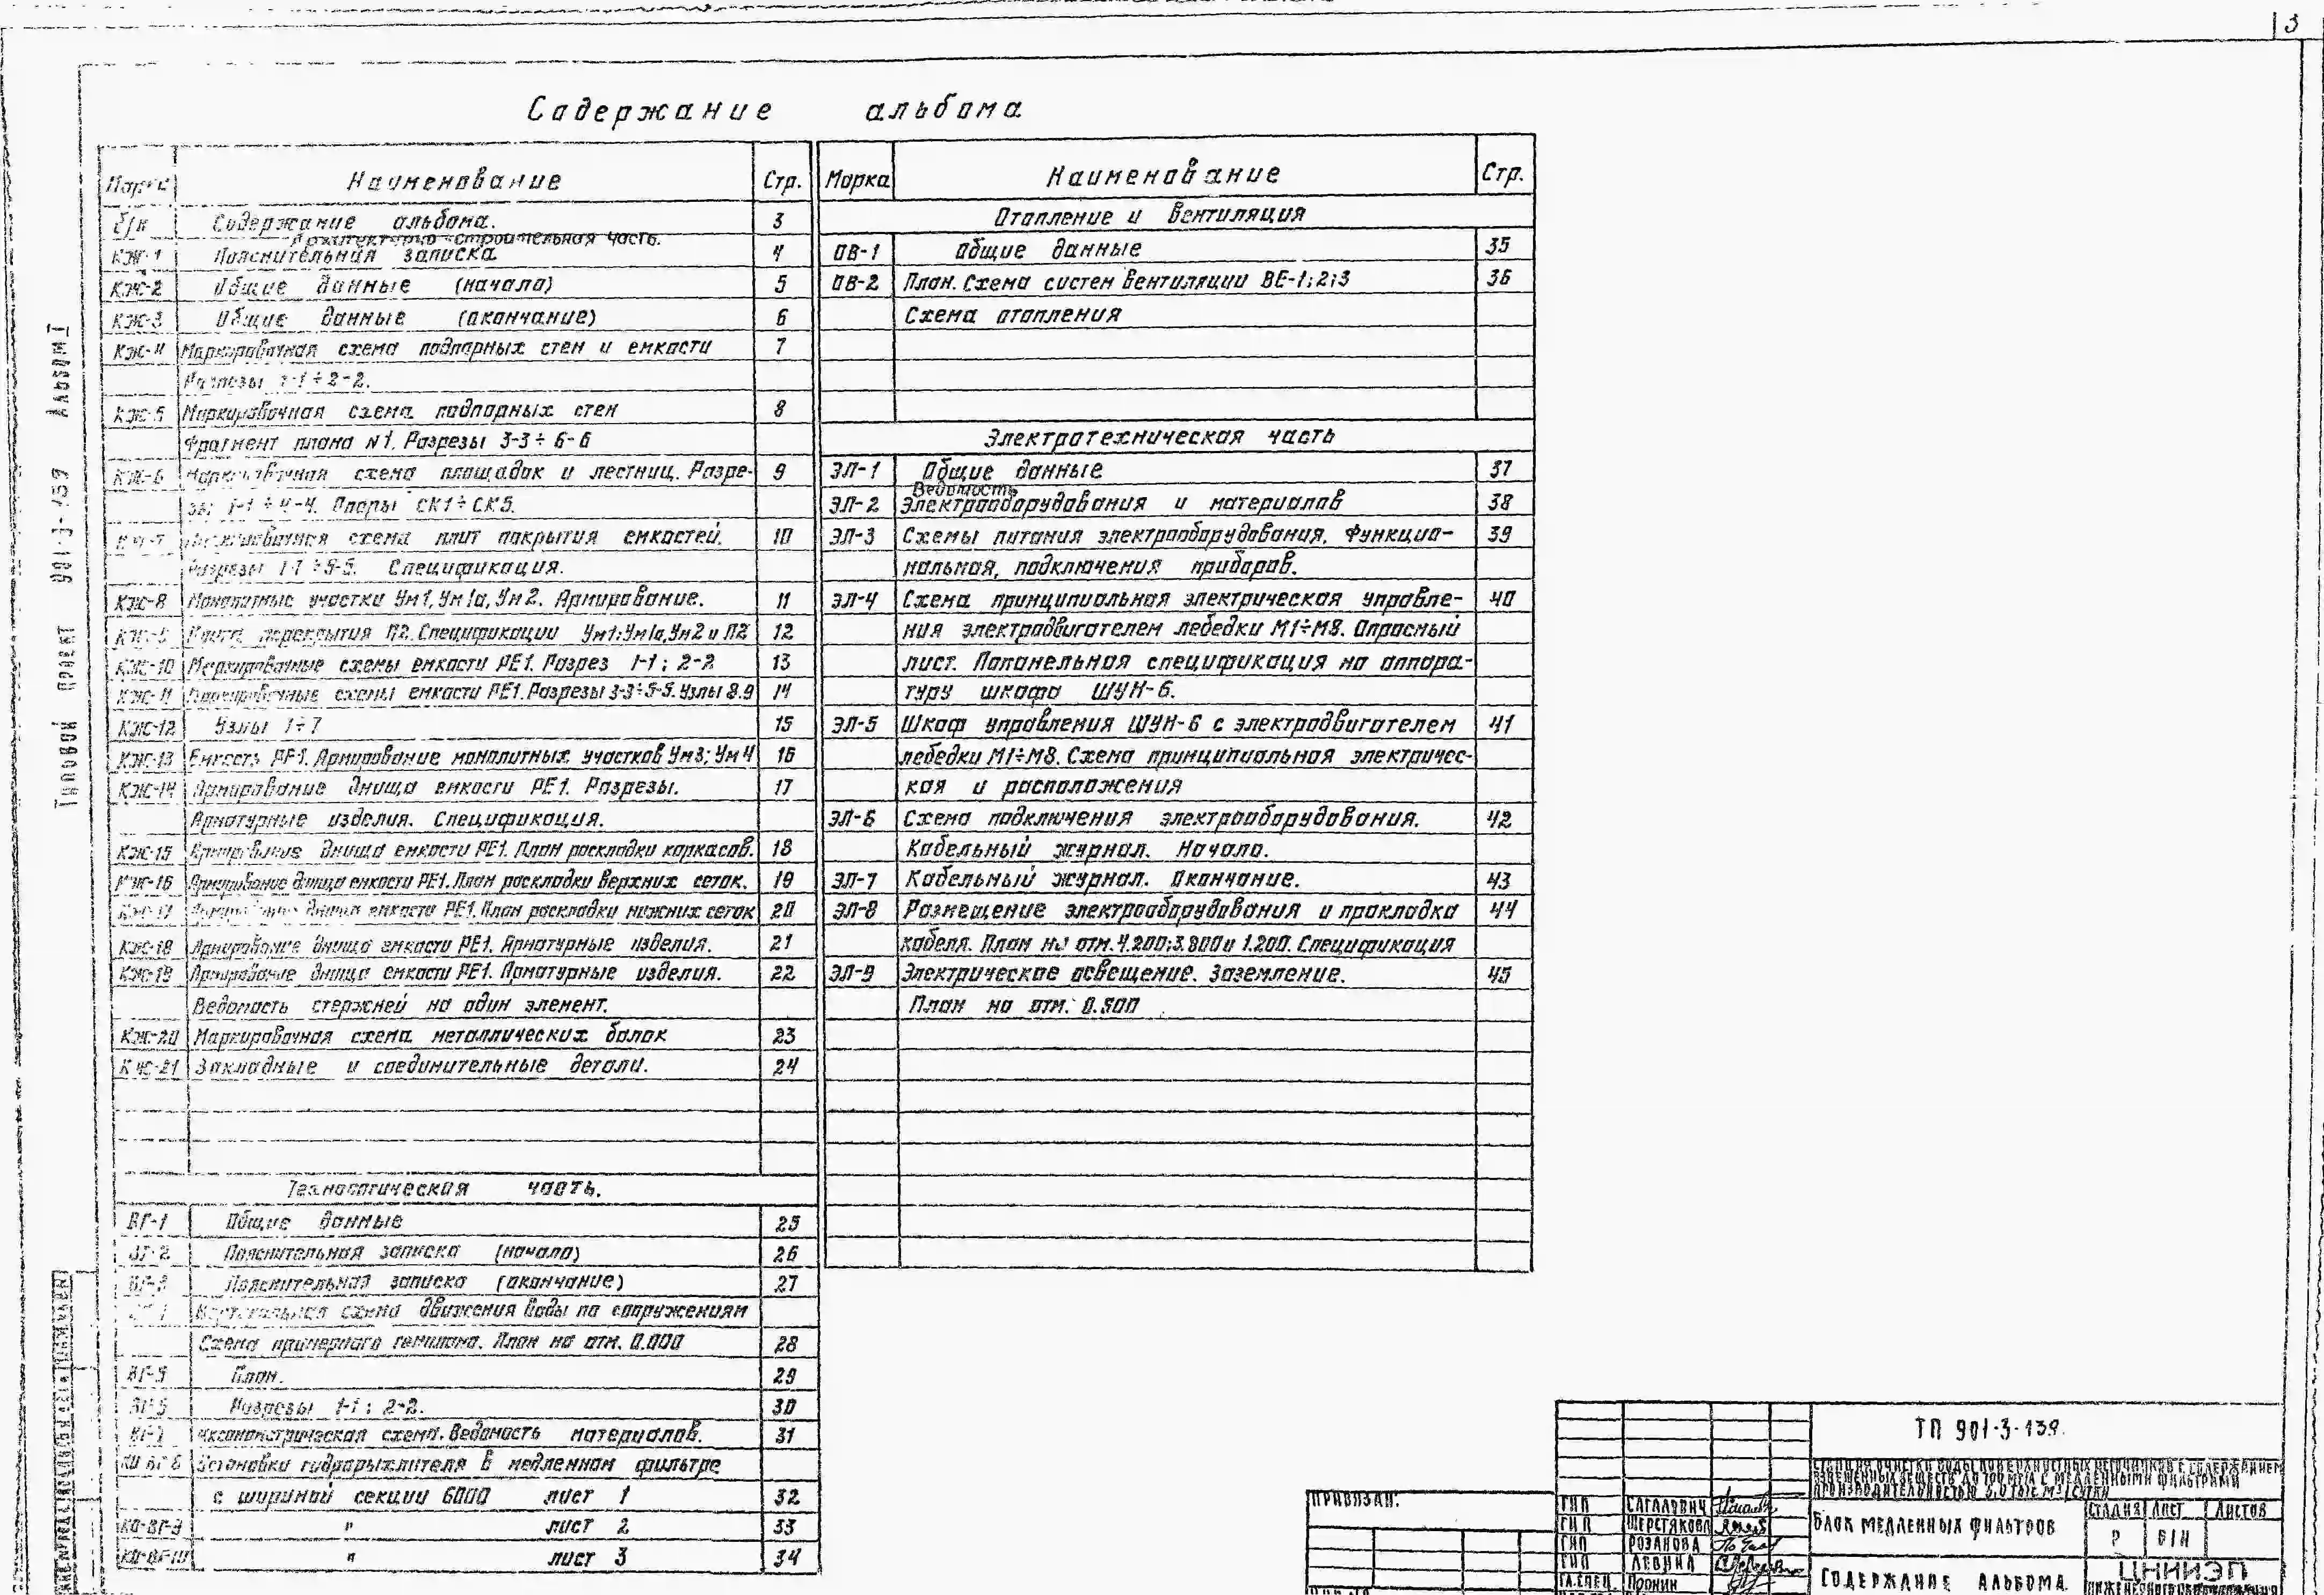 3
Содержание альбома
Марка Наименование Стр.
б/н Содержание альбома. 3
Архитектурно-строительная часть.
КЖ-1 Пояснительная записка 4
КЖ-2 Общие данные (начало) 5
КЖ-3 Общие данные (окончание) 6
КЖ-4 Маркировочная схема подпорных стен и емкости 7
Разрезы 1-1÷2-2.
КЖ-5 Маркировочная схема подпорных стен 8
Фрагмент плана №1. Разрезы 3-3÷6-6
КЖ-6 Маркировочная схема площадок и лестниц. Разре- 9
зы 1-1÷4-4. Опоры СК1÷СК5.
КЖ-7 Маркировочная схема плит покрытия емкостей. 10
Разрезы 1-1÷5-5. Спецификация.
КЖ-8 Монолитные участки Ум1, Ум1а, Ум2. Армирование. 11
КЖ-9 Плита перекрытия П2. Спецификации Ум1; Ум1а, Ум2 и П2 12
КЖ-10 Маркировочные схемы емкости РЕ1. Разрез 1-1; 2-2 13
КЖ-11 Маркировочные схемы емкости РЕ1. Разрезы 3-3÷5-5. Узлы 8.9 14
КЖ-12 Узлы 1÷7 15
КЖ-13 Емкость РЕ1. Армирование монолитных участков Ум3; Ум4 16
КЖ-14 Армирование днища емкости РЕ1. Разрезы. 17
Арматурные изделия. Спецификация.
КЖ-15 Армирование днища емкости РЕ1. План раскладки каркасов. 18
КЖ-16 Армирование днища емкости РЕ1. План раскладки верхних сеток. 19
КЖ-17 Армирование днища емкости РЕ1. План раскладки нижних сеток 20
КЖ-18 Армирование днища емкости РЕ1. Арматурные изделия. 21
КЖ-19 Армирование днища емкости РЕ1. Арматурные изделия. 22
Ведомость стержней на один элемент.
КЖ-20 Маркировочная схема металлических балок 23
КЖ-21 Закладные и соединительные детали. 24
Технологическая часть.
ВГ-1 Общие данные 25
ВГ-2 Пояснительная записка (начало) 26
ВГ-3 Пояснительная записка (окончание) 27
ВГ-4 схема движения воды по сооружениям
Схема примерного генплана. План на отм. 0.000 28
ВГ-5 План. 29
ВГ-6 Разрезы 1-1; 2-2. 30
ВГ-7 Аксонометрическая схема. Ведомость материалов. 31
КО ВГ-8 Установки гидрорыхлителя в медленном фильтре
с шириной секции 6000 лист 1 32
КО-ВГ-9 " лист 2 33
КО-ВГ-10 " лист 3 34
Марка Наименование Стр.
Отопление и вентиляция
ОВ-1 Общие данные 35
ОВ-2 План. Схема систем вентиляции ВЕ-1;2;3 36
Схема отопления
Электротехническая часть
ЭЛ-1 Общие данные 37
Ведомость
ЭЛ-2 Электрооборудования и материалов 38
ЭЛ-3 Схемы питания электрооборудования, Функцио- 39
нальная, подключения приборов.
ЭЛ-4 Схема принципиальная электрическая управле- 40
ния электродвигателем лебедки М1÷М8. Опросный
лист. Попанельная спецификация на аппара-
туру шкафа ШУН-6.
ЭЛ-5 Шкаф управления ШУН-6 с электродвигателем 41
лебедки М1÷М8. Схема принципиальная электричес-
кая и расположения
ЭЛ-6 Схема подключения электрооборудования. 42
Кабельный журнал. Начало.
ЭЛ-7 Кабельный журнал. Окончание. 43
ЭЛ-8 Размещение электрооборудования и прокладка 44
кабеля. План на отм. 4.200; 3.800 и 1.200. Спецификация
ЭЛ-9 Электрическое освещение. Заземление. 45
План на отм. 0.500
Типовой проект 901-3-139 Альбом I
ПРИВЯЗАН:
ТП 901-3-139.
СТАНЦИЯ ОЧИСТКИ ВОДЫ ПОВЕРХНОСТНЫХ ИСТОЧНИКОВ С СОДЕРЖАНИЕМ
ВЗВЕШЕННЫХ ВЕЩЕСТВ ДО 700 МГ/Л С МЕДЛЕННЫМИ ФИЛЬТРАМИ
ПРОИЗВОДИТЕЛЬНОСТЬЮ ТЫС. М³/СУТКИ
ГИП САГАЛОВИЧ
ГИП ШЕРСТЯКОВА
ГИП РОЗАНОВА
ГИП ЛЕВИНА
ГЛ.СПЕЦ. ПРОНИН
БЛОК МЕДЛЕННЫХ ФИЛЬТРОВ
СТАДИЯ ЛИСТ ЛИСТОВ
Р Б/Н
СОДЕРЖАНИЕ АЛЬБОМА.
ЦНИИЭП
ИНЖЕНЕРНОГО ОБОРУДОВАНИЯ